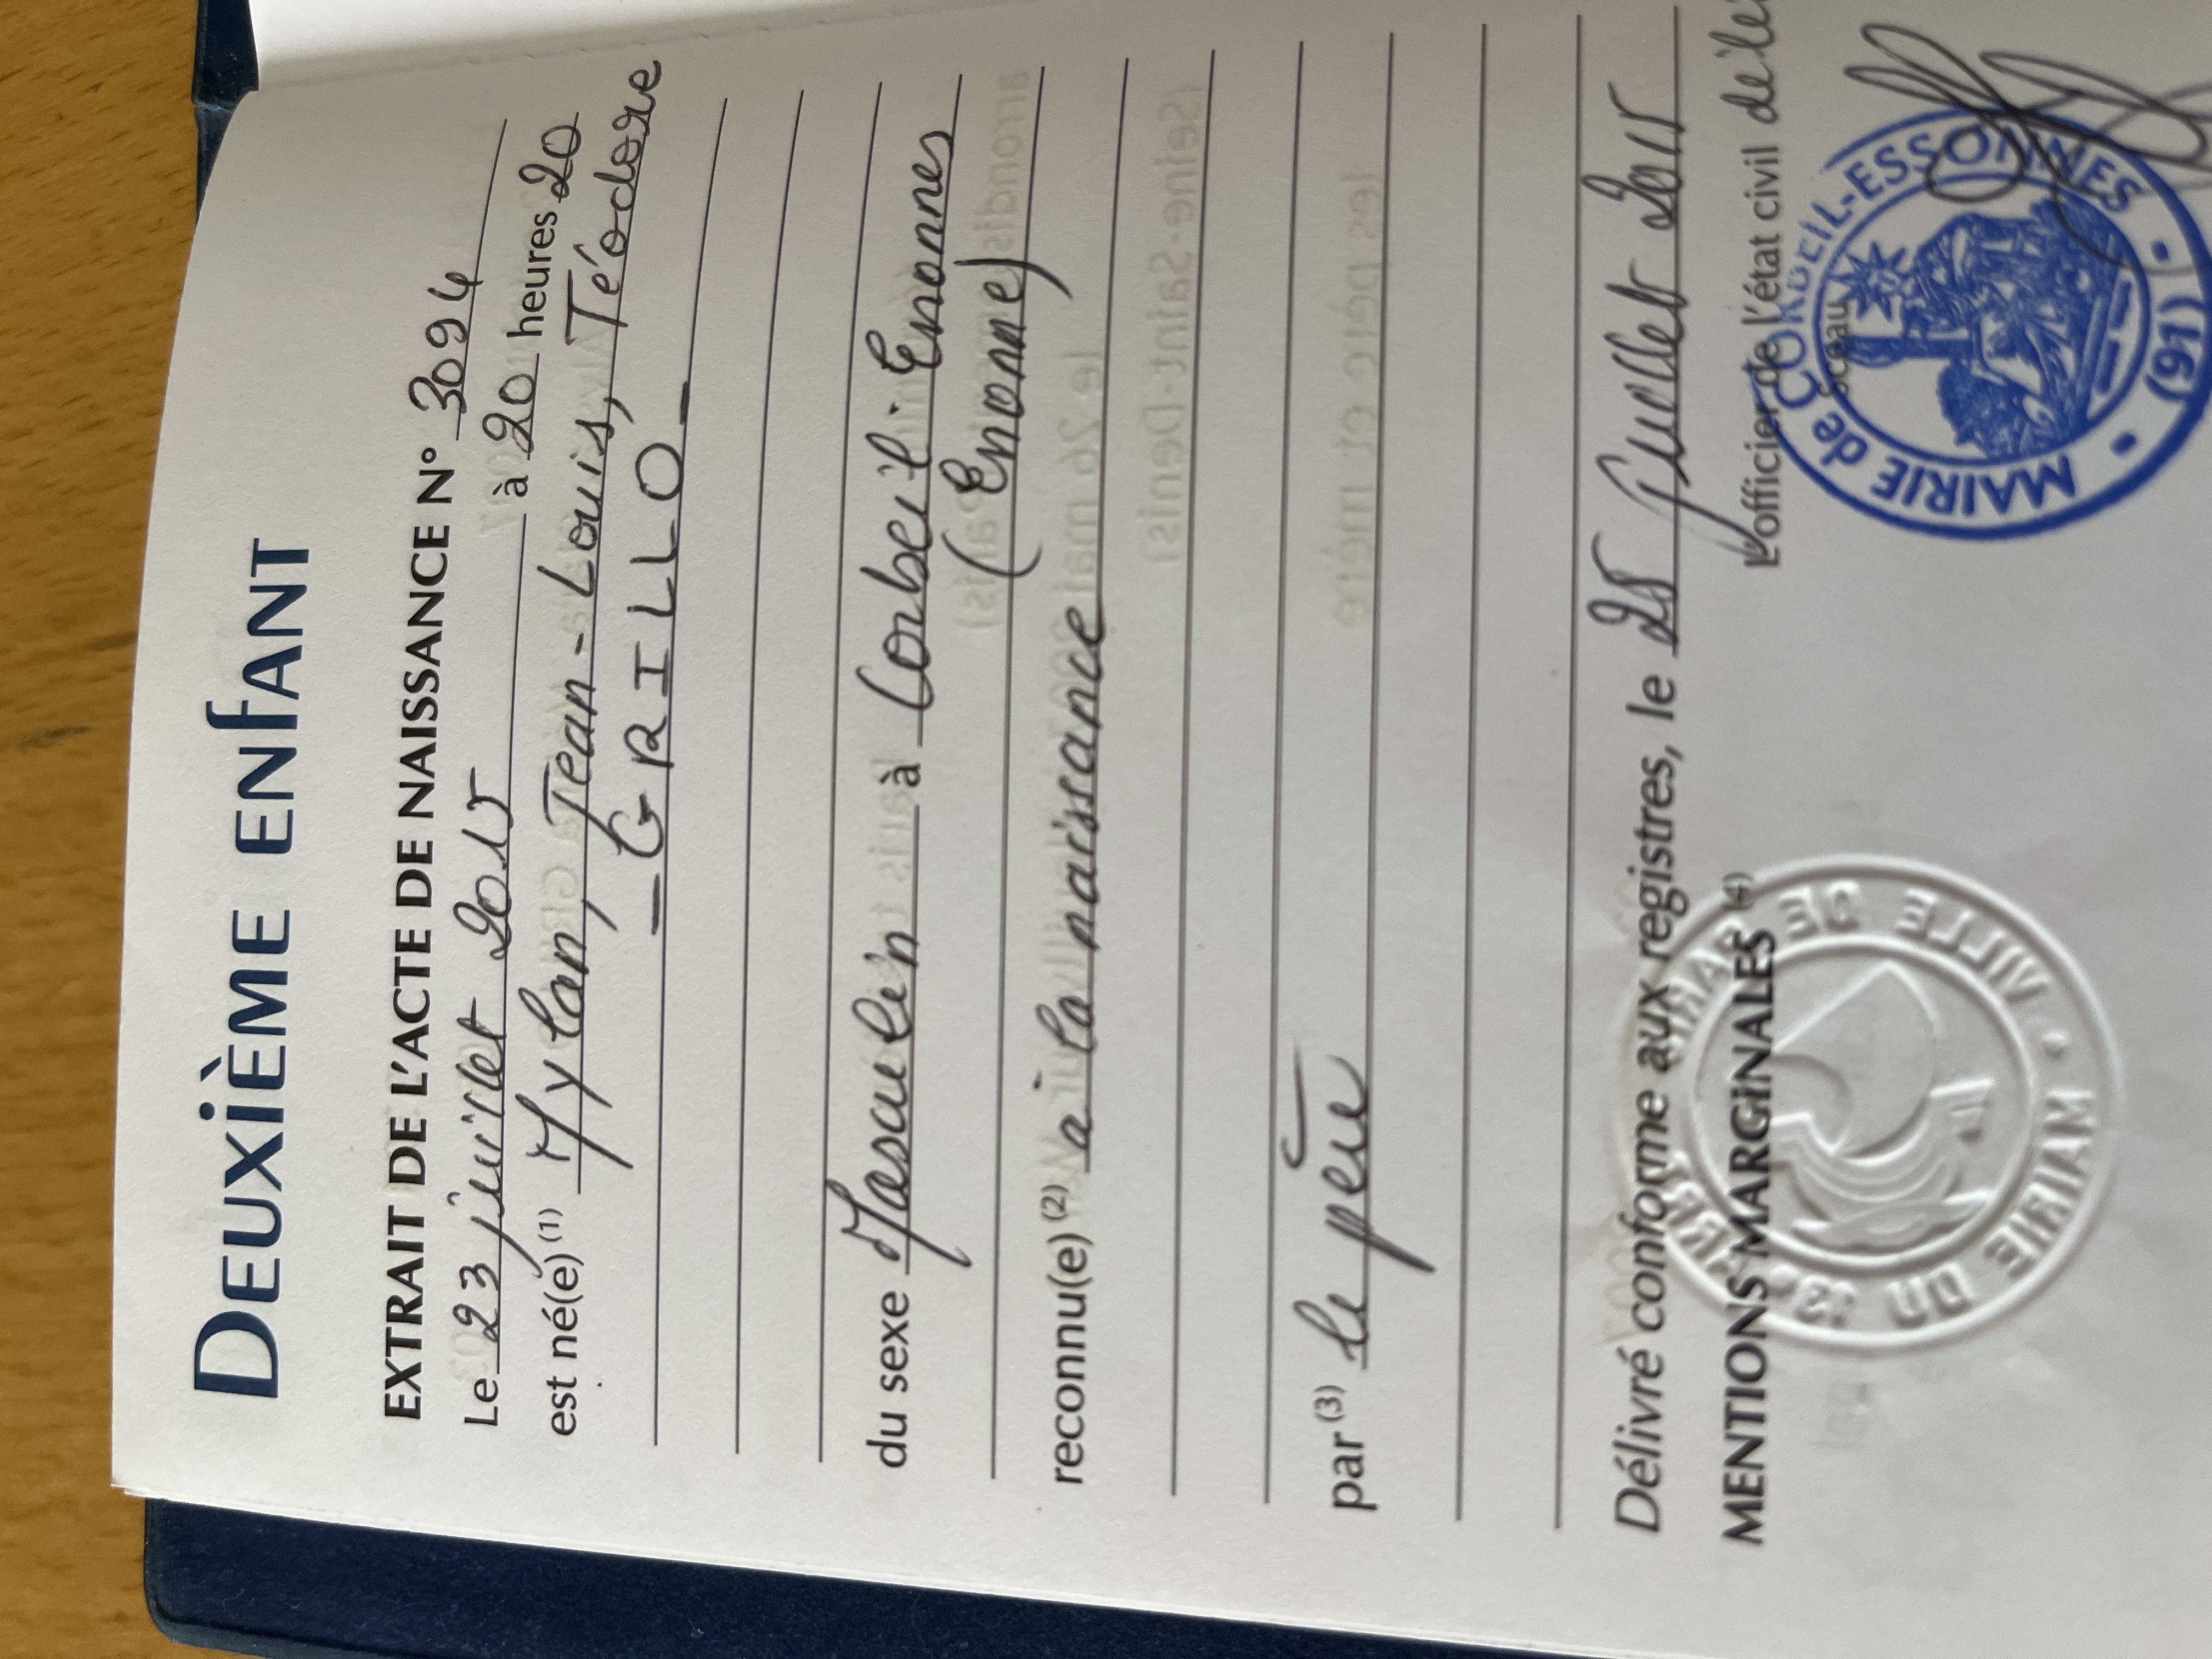 DEUXIÈME ENFANT
EXTRAIT DE L'ACTE DE NAISSANCE N° 3094
Le 23 juillet 2015 à 20 heures 20
est né(e) (1) Mylan, Jean-Louis, Téodore
— GRILLO —
du sexe Masculin à Corbeil-Essonnes
(Essonne)
reconnu(e) (2) à la naissance
par (3) le père
Délivré conforme aux registres, le 25 Juillet 2015
L'officier de l'état civil
Sceau
MENTIONS MARGINALES (4)
MAIRIE de CORBEIL-ESSONNES
(91)
MAIRIE DU 13
VILLE DE PARIS